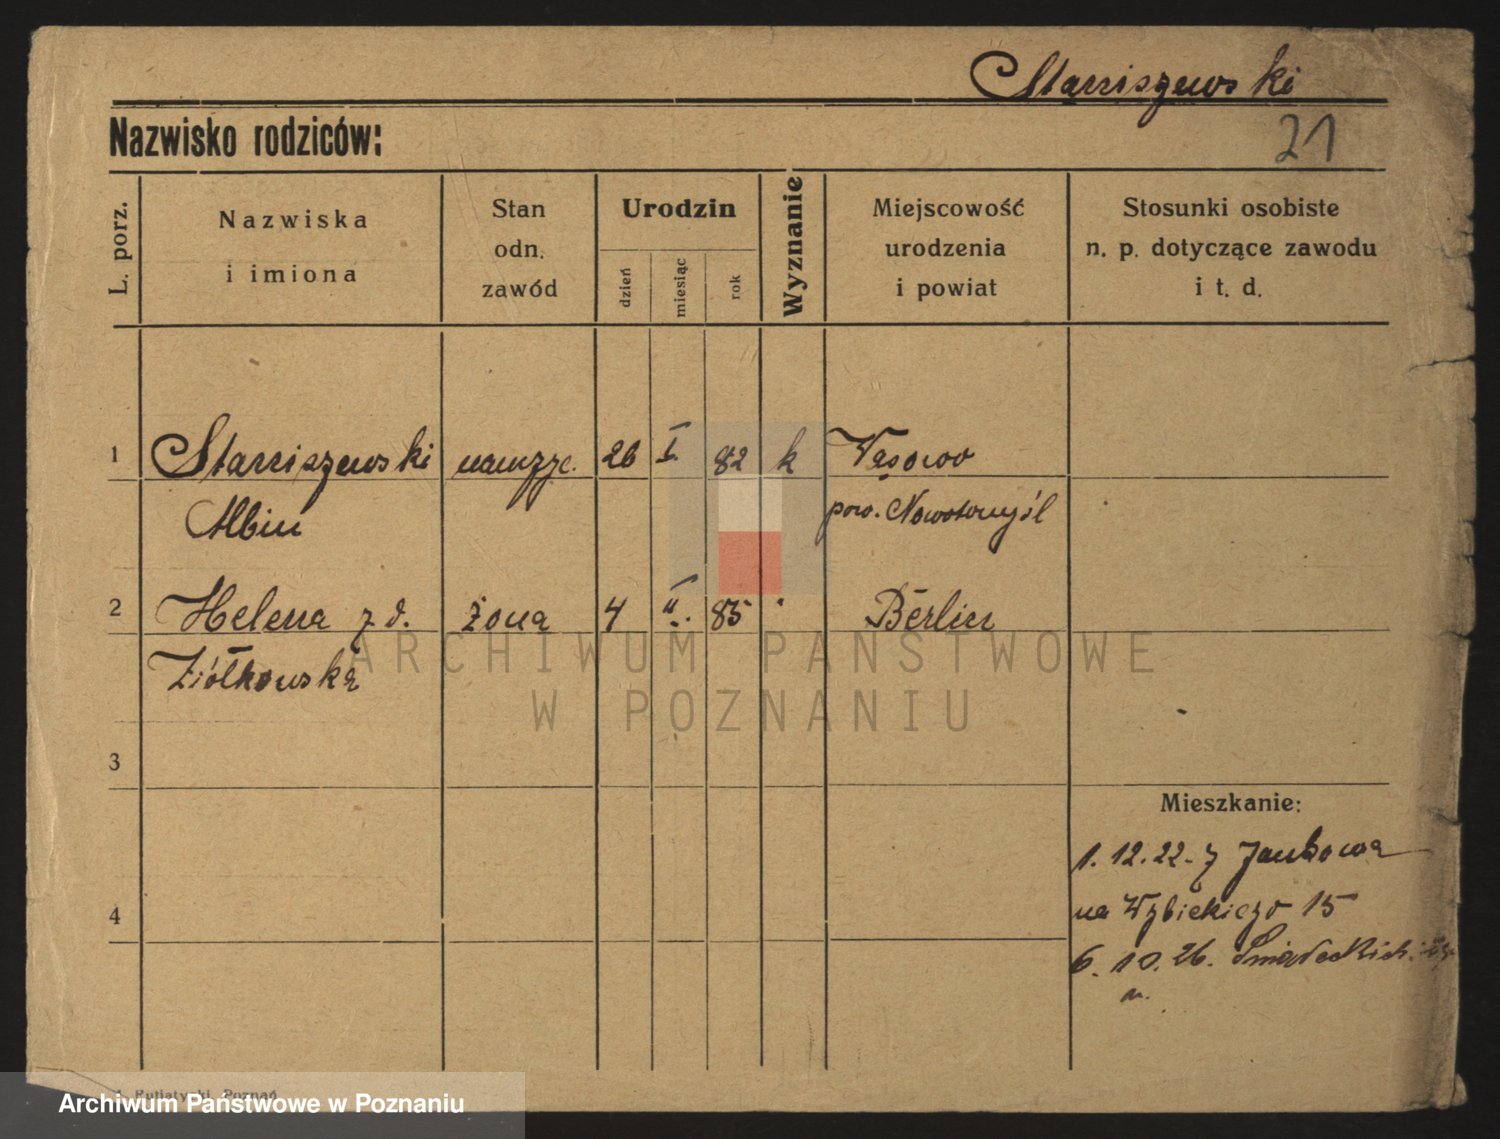 Staniszewski
Nazwisko rodziców:
21
L. porz.
Nazwiska
i imiona
Stan
odn.
zawód
Urodzin
dzień
miesiąc
rok
Wyznanie
Miejscowość
urodzenia
i powiat
Stosunki osobiste
n. p. dotyczące zawodu
i t. d.
1 Staniszewski nauczyc. 26 I. 82 k Wąsowo
Albin pow. Nowotomyśl
2 Helena z d. żona 4 II. 85 " Berlin
Ziółkowska
ARCHIWUM PAŃSTWOWE
W POZNANIU
3
Mieszkanie:
1. 12. 22 - z Jankowa
4
na Wybickiego 15
6. 10. 26. Śniadeckich
Poznań
Archiwum Państwowe w Poznaniu